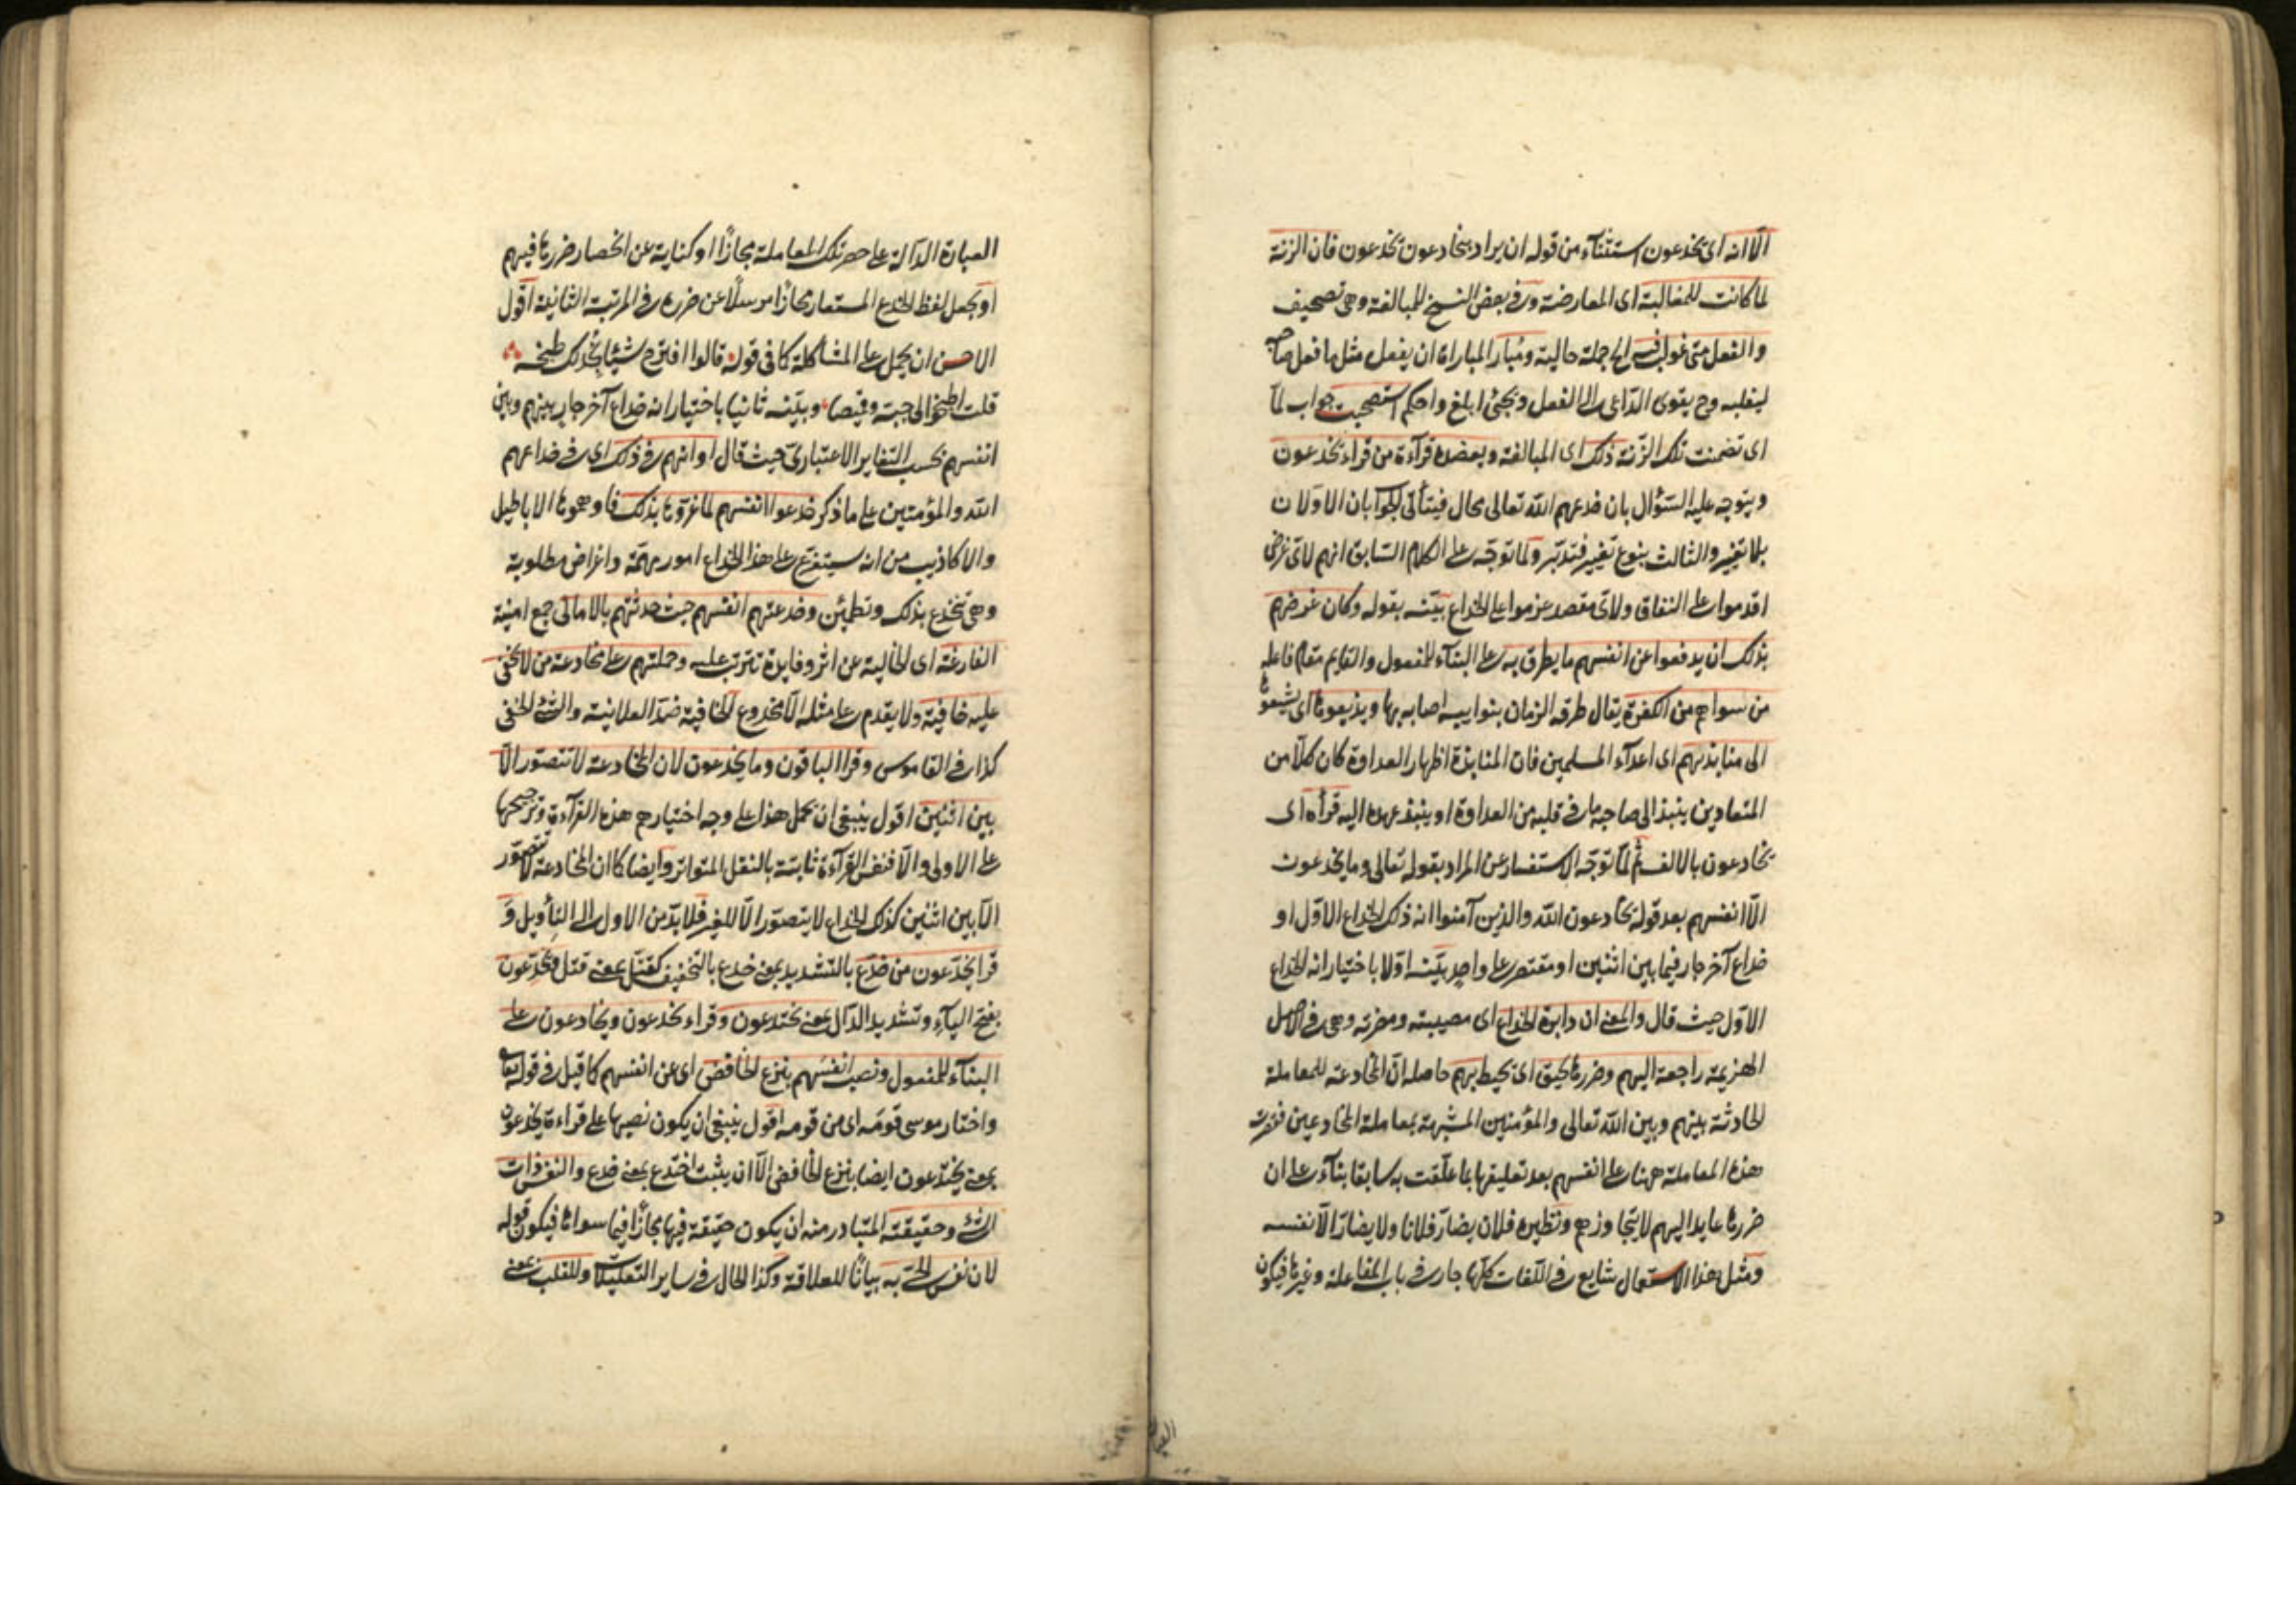 الا انه اى يخدعون استثناء من قوله ان يراد بيخادعون يخدعون فان الزنة
لما كانت للمغالبة اى المعارضة وفى بعض النسخ للمبالغة وهى تصحيف
والفعل متى غولب فيه الخ جملة حالية ومُبار المباراة ان يفعل مثل ما فعل صاحبه
ليغلبه وح يقوى الداعى الى الفعل ويجئ ابلغ واحكم استصحبت جواب لما
اى تضمنت تلك الزنة ذلك اى المبالغة ويعضده قراءة من قراء يخدعون
ويتوجه عليه السؤال بان خدعهم الله تعالى محال فيتأتى الجواب بان الاولان
بلا تغيير والثالث بنوع تغيير فتدبر ولما توجه على الكلام السابق انهم لاى غرض
اقدموا على النفاق ولاى مقصد عزموا على الخداع بيّنه بقوله وكان غرضهم
بذلك ان يدفعوا عن انفسهم ما يطرق به على البناء للمفعول والقايم مقام فاعله
من سواهم من الكفرة يقال طرقه الزمان بنوايبه اصابه بها ويذيعوها اى يشيعوها
الى منابذيهم اى اعداء المسلمين فان المنابذة اظهار العداوة كان كلا من
المتعادين ينبذ الى صاحبه ما فى قلبه من العداوة او ينبذ عهده اليه قرأه اى
يخادعون بالالف ثم لما توجه الاستفسار عن المراد بقوله تعالى وما يخدعون
الا انفسهم بعد قوله يخادعون الله والذين آمنوا انه ذلك الخداع الاول او
خداع آخر جار فيما بين اثنين او مقتصر على واحد بيّنه اولا باختيار انه الخداع
الاول حيث قال والمعنى ان دايرة الخداع اى مصيبته ومضرته وهى فى الاصل
الهزيمة راجعة اليهم وضررها يحيق اى يحيط بهم حاصله ان المخادعة للمعاملة
الحادثة بينهم وبين الله تعالى والمؤمنين المشبهة بمعاملة المخادعين فقصرت
هذه المعاملة ههنا على انفسهم بعد تعليقها بما علقت به سابقا بناء على ان
ضررها عايد اليهم لا يتجاوزهم ونظيره فلان يضارّ فلانا ولا يضارّ الا نفسه
ومثل هذا الاستعمال شايع فى اللغات كلها جار فى باب المفاعلة وغيرها فيكون
العبارة الدالة على حصر تلك المعاملة مجازًا او كناية عن انحصار ضررها فيهم
او يجعل لفظ الخداع المستعار مجازًا مرسلًا عن ضرره فى المرتبة الثانية اقول
الاحسن ان يحمل على المشاكلة كما فى قوله قالوا اقترح شيئا نُجِدْ لك طبخه
قلت اطبخوا لى جبة وقميصا وبيّنه ثانيا باختيار انه خداع آخر جار بينهم وبين
انفسهم بحسب التغاير الاعتبارى حيث قال او انهم فى ذلك اى فى خداعهم
الله والمؤمنين على ما ذكر خدعوا انفسهم لما غروها بذلك فاوهموها الاباطيل
والاكاذيب من انه سيتفرع على هذا الخداع امور مهمة واغراض مطلوبة
وهى تنخدع بذلك وتطمئن وخدعتهم انفسهم حيث حدثتهم بالامانى جمع امنية
الفارغة اى الخالية عن اثر وفايدة تترتب عليه وحملتهم على مخادعة من لا تخفى
عليه خافية ولا يقدم على مثله الا مخدوع الخافية ضد العلانية والشئ الخفى
كذا فى القاموس وقرا الباقون وما يخدعون لان المخادعة لا تتصور الا
بين اثنين اقول ينبغى ان يحمل هذا على وجه اختيارهم هذه القراءة وترجيحها
على الاولى والا فنفس القراءة ثابتة بالنقل المتواتر وايضا كما ان المخادعة لا تتصور
الا بين اثنين كذلك الخداع لا يتصور الا للغير فلا بد من الاول الى التأويل وَ
قرا يخدّعون من خدّع بالتشديد بمعنى خدع بالتخفيف كقتّل بمعنى قتل ويَخَدّعون
بفتح الياء وتشديد الدال بمعنى يختدعون وقراء يخدعون ويخادعون على
البناء للمفعول ونصب انفسَهم بنزع الخافض اى عن انفسهم كما قيل فى قوله تعا
واختار موسى قومَه اى من قومه اقول ينبغى ان يكون نصبها على قراءة يخدعون
بمعنى يختدعون ايضا بنزع الخافض الا ان يثبت اختدع بمعنى خدع والنفس ذات
الشئ وحقيقته المتبادر منه ان يكون حقيقة فيها مجازًا فيما سواها فيكون قوله
لان نفس الحى به بيانًا للعلاقة وكذا الحال فى ساير التعليلات وللقلب بمعنى